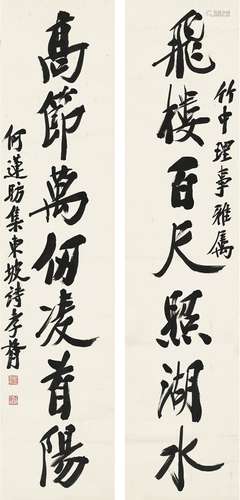 飛樓百尺照湖水
竹中理事雅属
高節萬仞凌首陽
何蓮舫集東坡詩孝胥